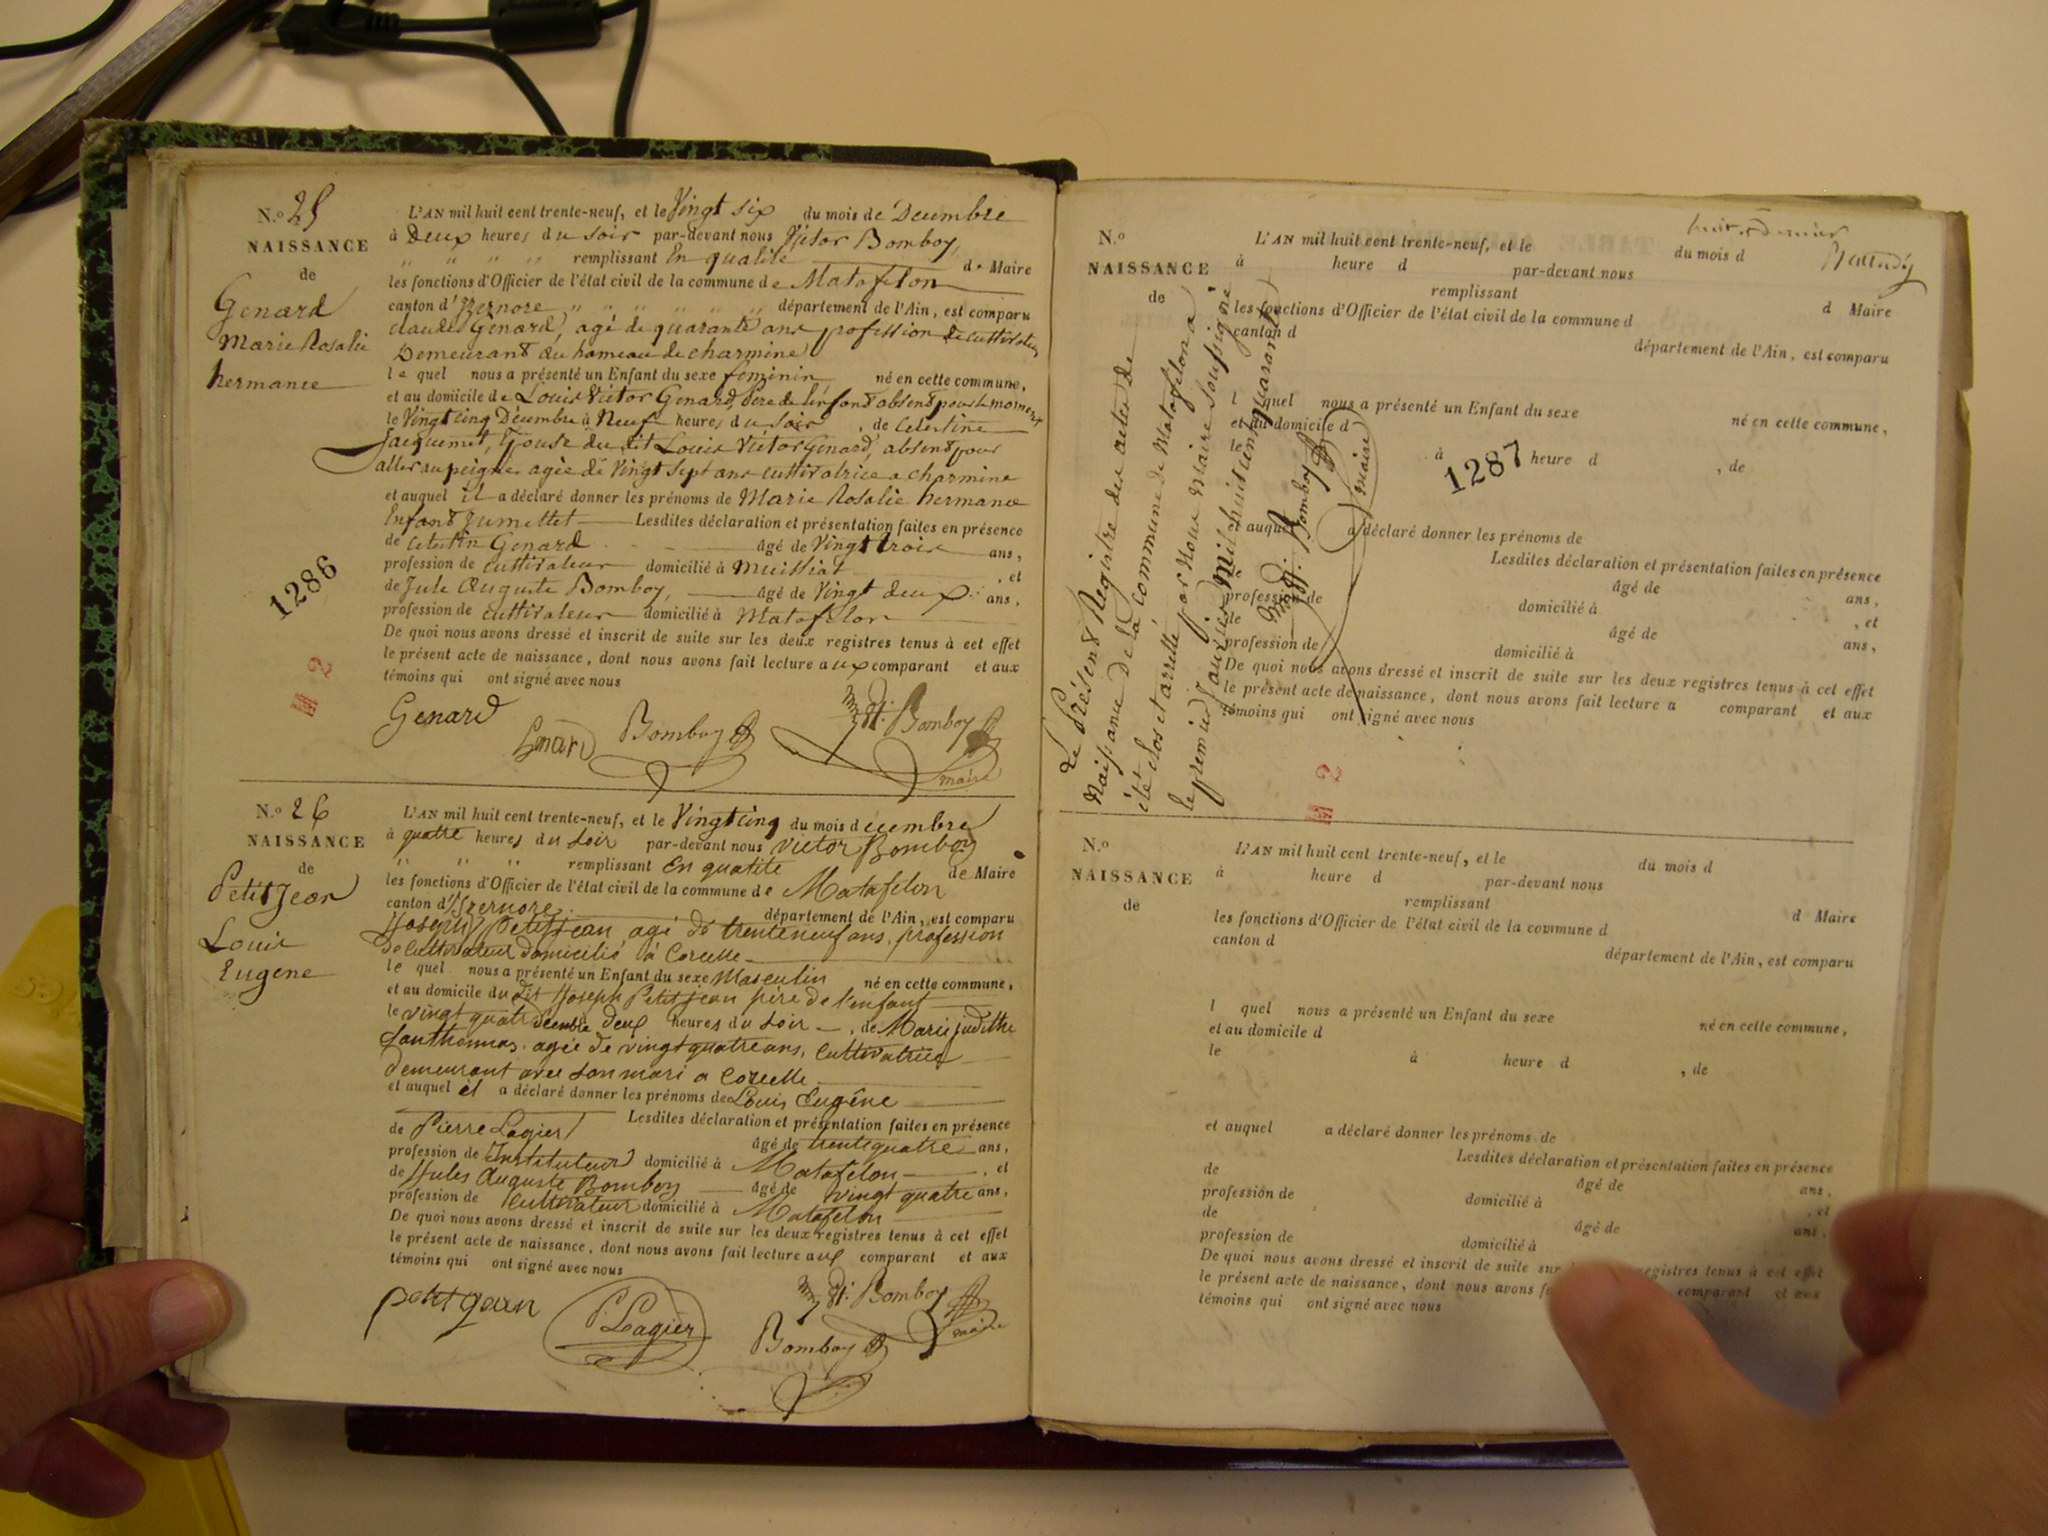 N.o 25
NAISSANCE
de
Genard
Marie Rosalie
hermance
L'AN mil huit cent trente-neuf, et le Vingt six du mois de Decembre
à Deux heures du soir par-devant nous Victor Bomboy,
remplissant En qualité de Maire
les fonctions d'Officier de l'état civil de la commune de Matafelon
canton d'Izernore département de l'Ain, est comparu
claude Genard, agé de quarante ans profession de cultivateur
Demeurant au hameau de charmine
le quel nous a présenté un Enfant du sexe feminin né en cette commune,
et au domicile de Louis Victor Genard, Pere de l'enfant absent pour le moment
le Vingt cinq Décembre à Neuf heures du soir, de Celestine
Jacquemet, Epouse du dit Louis Victor Genard, absent pour
aller au peigne agée de Vingt Sept ans cultivatrice a charmine
et auquel il a déclaré donner les prénoms de Marie Rosalie hermance
Enfant Jumettet Lesdites déclaration et présentation faites en présence
de Celestin Genard âgé de Vingt trois ans,
profession de cultivateur domicilié à Muissiat, et
de Jule Auguste Bomboy, âgé de Vingt deux ans,
profession de cultivateur domicilié à Matafelon
De quoi nous avons dressé et inscrit de suite sur les deux registres tenus à cet effet
le présent acte de naissance, dont nous avons fait lecture aux comparant et aux
témoins qui ont signé avec nous
Genard
Genard
Bomboy
Bomboy
maire
1286
2
N.o 26
NAISSANCE
de
Petit Jean
Louis
Eugene
L'AN mil huit cent trente-neuf, et le Vingt cinq du mois decembre
à quatre heures du soir par-devant nous Victor Bomboy
remplissant En qualité de Maire
les fonctions d'Officier de l'état civil de la commune de Matafelon
canton d'Izernore département de l'Ain, est comparu
Hoseph Petitjean agé de trente neuf ans, profession
de Cultivateur domicilié à Corcelle
le quel nous a présenté un Enfant du sexe Masculin né en cette commune,
et au domicile du dit Hoseph Petit jean père de l'enfant
le vingt quatre decembre deux heures du soir, de Marie judithe
agée de vingt quatre ans, Cultivatrice
demeurant avec son mari a Corcelle
et auquel il a déclaré donner les prénoms de Louis Eugêne
Lesdites déclaration et présentation faites en présence
de Pierre Lagier âgé de trente quatre ans,
profession de Instituteur domicilié à Matafelon, et
de Hules Auguste Bomboy âgé de vingt quatre ans,
profession de Cultivateur domicilié à Matafelon
De quoi nous avons dressé et inscrit de suite sur les deux registres tenus à cet effet
le présent acte de naissance, dont nous avons fait lecture aux comparant et aux
témoins qui ont signé avec nous
petit jean
P. Lagier
Bomboy
maire
Bomboy
N.o
NAISSANCE
de
L'AN mil huit cent trente-neuf, et le du mois d
à heure d par-devant nous
remplissant d Maire
les fonctions d'Officier de l'état civil de la commune d
canton d département de l'Ain, est comparu
l quel nous a présenté un Enfant du sexe né en cette commune,
et au domicile d
le à heure d , de
1287
et auquel a déclaré donner les prénoms de
Lesdites déclaration et présentation faites en présence
de âgé de ans,
profession de domicilié à , et
de âgé de ans,
profession de domicilié à
De quoi nous avons dressé et inscrit de suite sur les deux registres tenus à cet effet
le présent acte de naissance, dont nous avons fait lecture a comparant et aux
témoins qui ont signé avec nous
Le Présent Registre des actes de
Naissance de la commune de Matafelon a
été clos et arretté par Nous Maire soussigné
le premier Janvier mil huit cent quarante
Bomboy
maire
2
N.o
NAISSANCE
de
L'AN mil huit cent trente-neuf, et le du mois d
à heure d par-devant nous
remplissant d Maire
les fonctions d'Officier de l'état civil de la commune d
canton d département de l'Ain, est comparu
l quel nous a présenté un Enfant du sexe né en cette commune,
et au domicile d
le à heure d , de
et auquel a déclaré donner les prénoms de
Lesdites déclaration et présentation faites en présence
de âgé de ans,
profession de domicilié à , et
de âgé de ans,
profession de domicilié à
De quoi nous avons dressé et inscrit de suite sur registres tenus à cet effet
le présent acte de naissance, dont nous avons comparant et aux
témoins qui ont signé avec nous